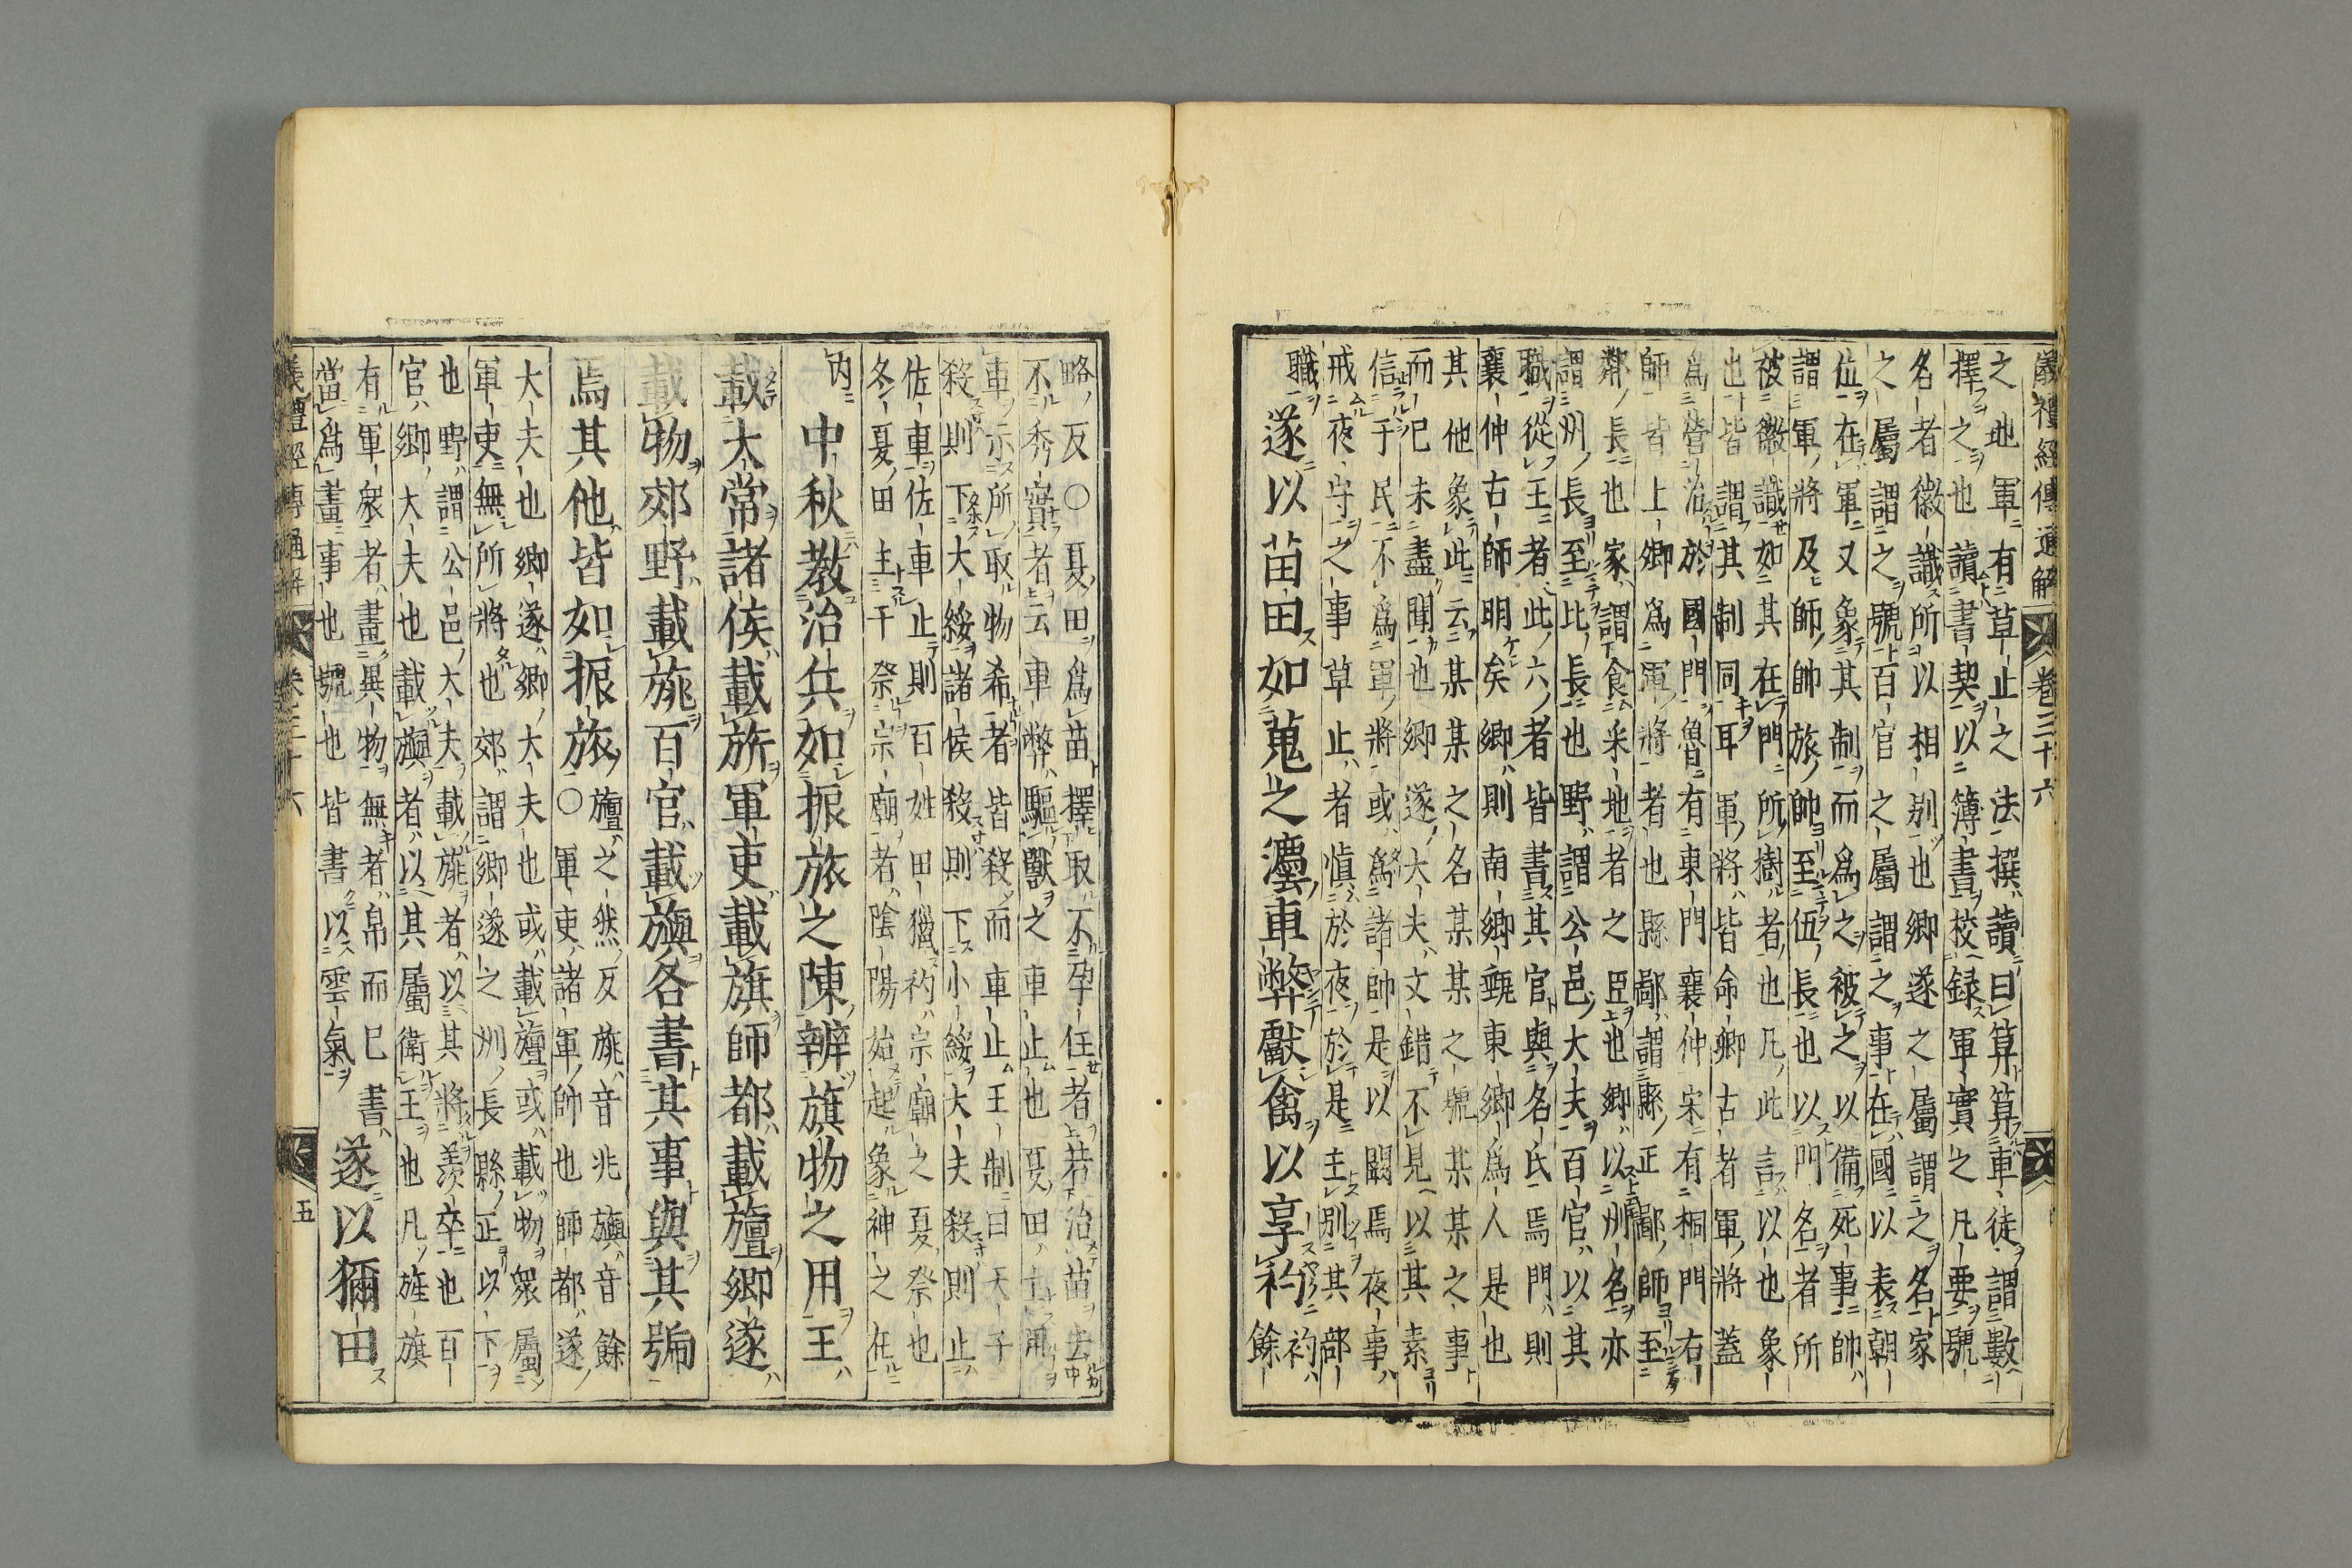 儀禮經傳通解 卷三十六
之地軍有草止之法撰讀曰算算車徒謂數
擇之也讀書契以簿書校録軍實之凡要號
名者徽識所以相别也卿遂之屬謂之名家
之屬謂之號百官之屬謂之事在國以表朝
位在軍又象其制而爲之被之以備死事帥
謂軍將及師帥旅帥至伍長也以門名者所
被徽識如其在門所樹者也凡此言以也象
也皆謂其制同耳軍將皆命卿古者軍將蓋
爲營治於國門魯有東門襄仲宋有桐門右
師皆上卿爲軍將者也縣鄙謂縣正鄙師至
鄰長也家謂食采地者之臣也鄉以州名亦
謂州長至比長也野謂公邑大夫百官以其
職從王者此六者皆書其官與名氏焉門則
襄仲右師明矣鄉則南鄉甀東鄉爲人是也
其他象此云某某之名某某之號某某之事
而已未盡聞也鄉遂大夫文錯不見以其素
信于民不爲軍將或爲諸帥是以闕焉夜事
戒夜守之事草止者愼於夜於是主别其部
職 遂以苗田如蒐之灋車弊獻禽以享礿 礿餘
略反〇夏田爲苗擇取不孕任者若治苗去
不秀實者云車弊驅獸之車止也夏田主用
車示所取物希皆殺而車止王制曰天子
殺則下大綏諸侯殺則下小綏大夫殺則止
佐車佐車止則百姓田獵礿宗廟之夏祭也
冬夏田主于祭宗廟者陰陽始起象神之在
内 中秋教治兵如振旅之陳辨旗物之用王
載大常諸侯載旂軍吏載旗師都載旜鄉遂
載物郊野載旐百官載旟各書其事與其號
焉其他皆如振旅 旜之然反旐音兆旟音餘
〇軍吏諸軍帥也師都遂
大夫也鄉遂鄉大夫也或載旜或載物衆屬
軍吏無所將也郊謂鄉遂之州長縣正以下
也野謂公邑大夫載旐者以其將羨卒也百
官卿大夫也載旟者以其屬衛王也凡旌旗
有軍衆者畫異物無者帛而已書
當爲畫事也號也皆書以雲氣 遂以獮田
儀禮經傳通解 卷三十六 五